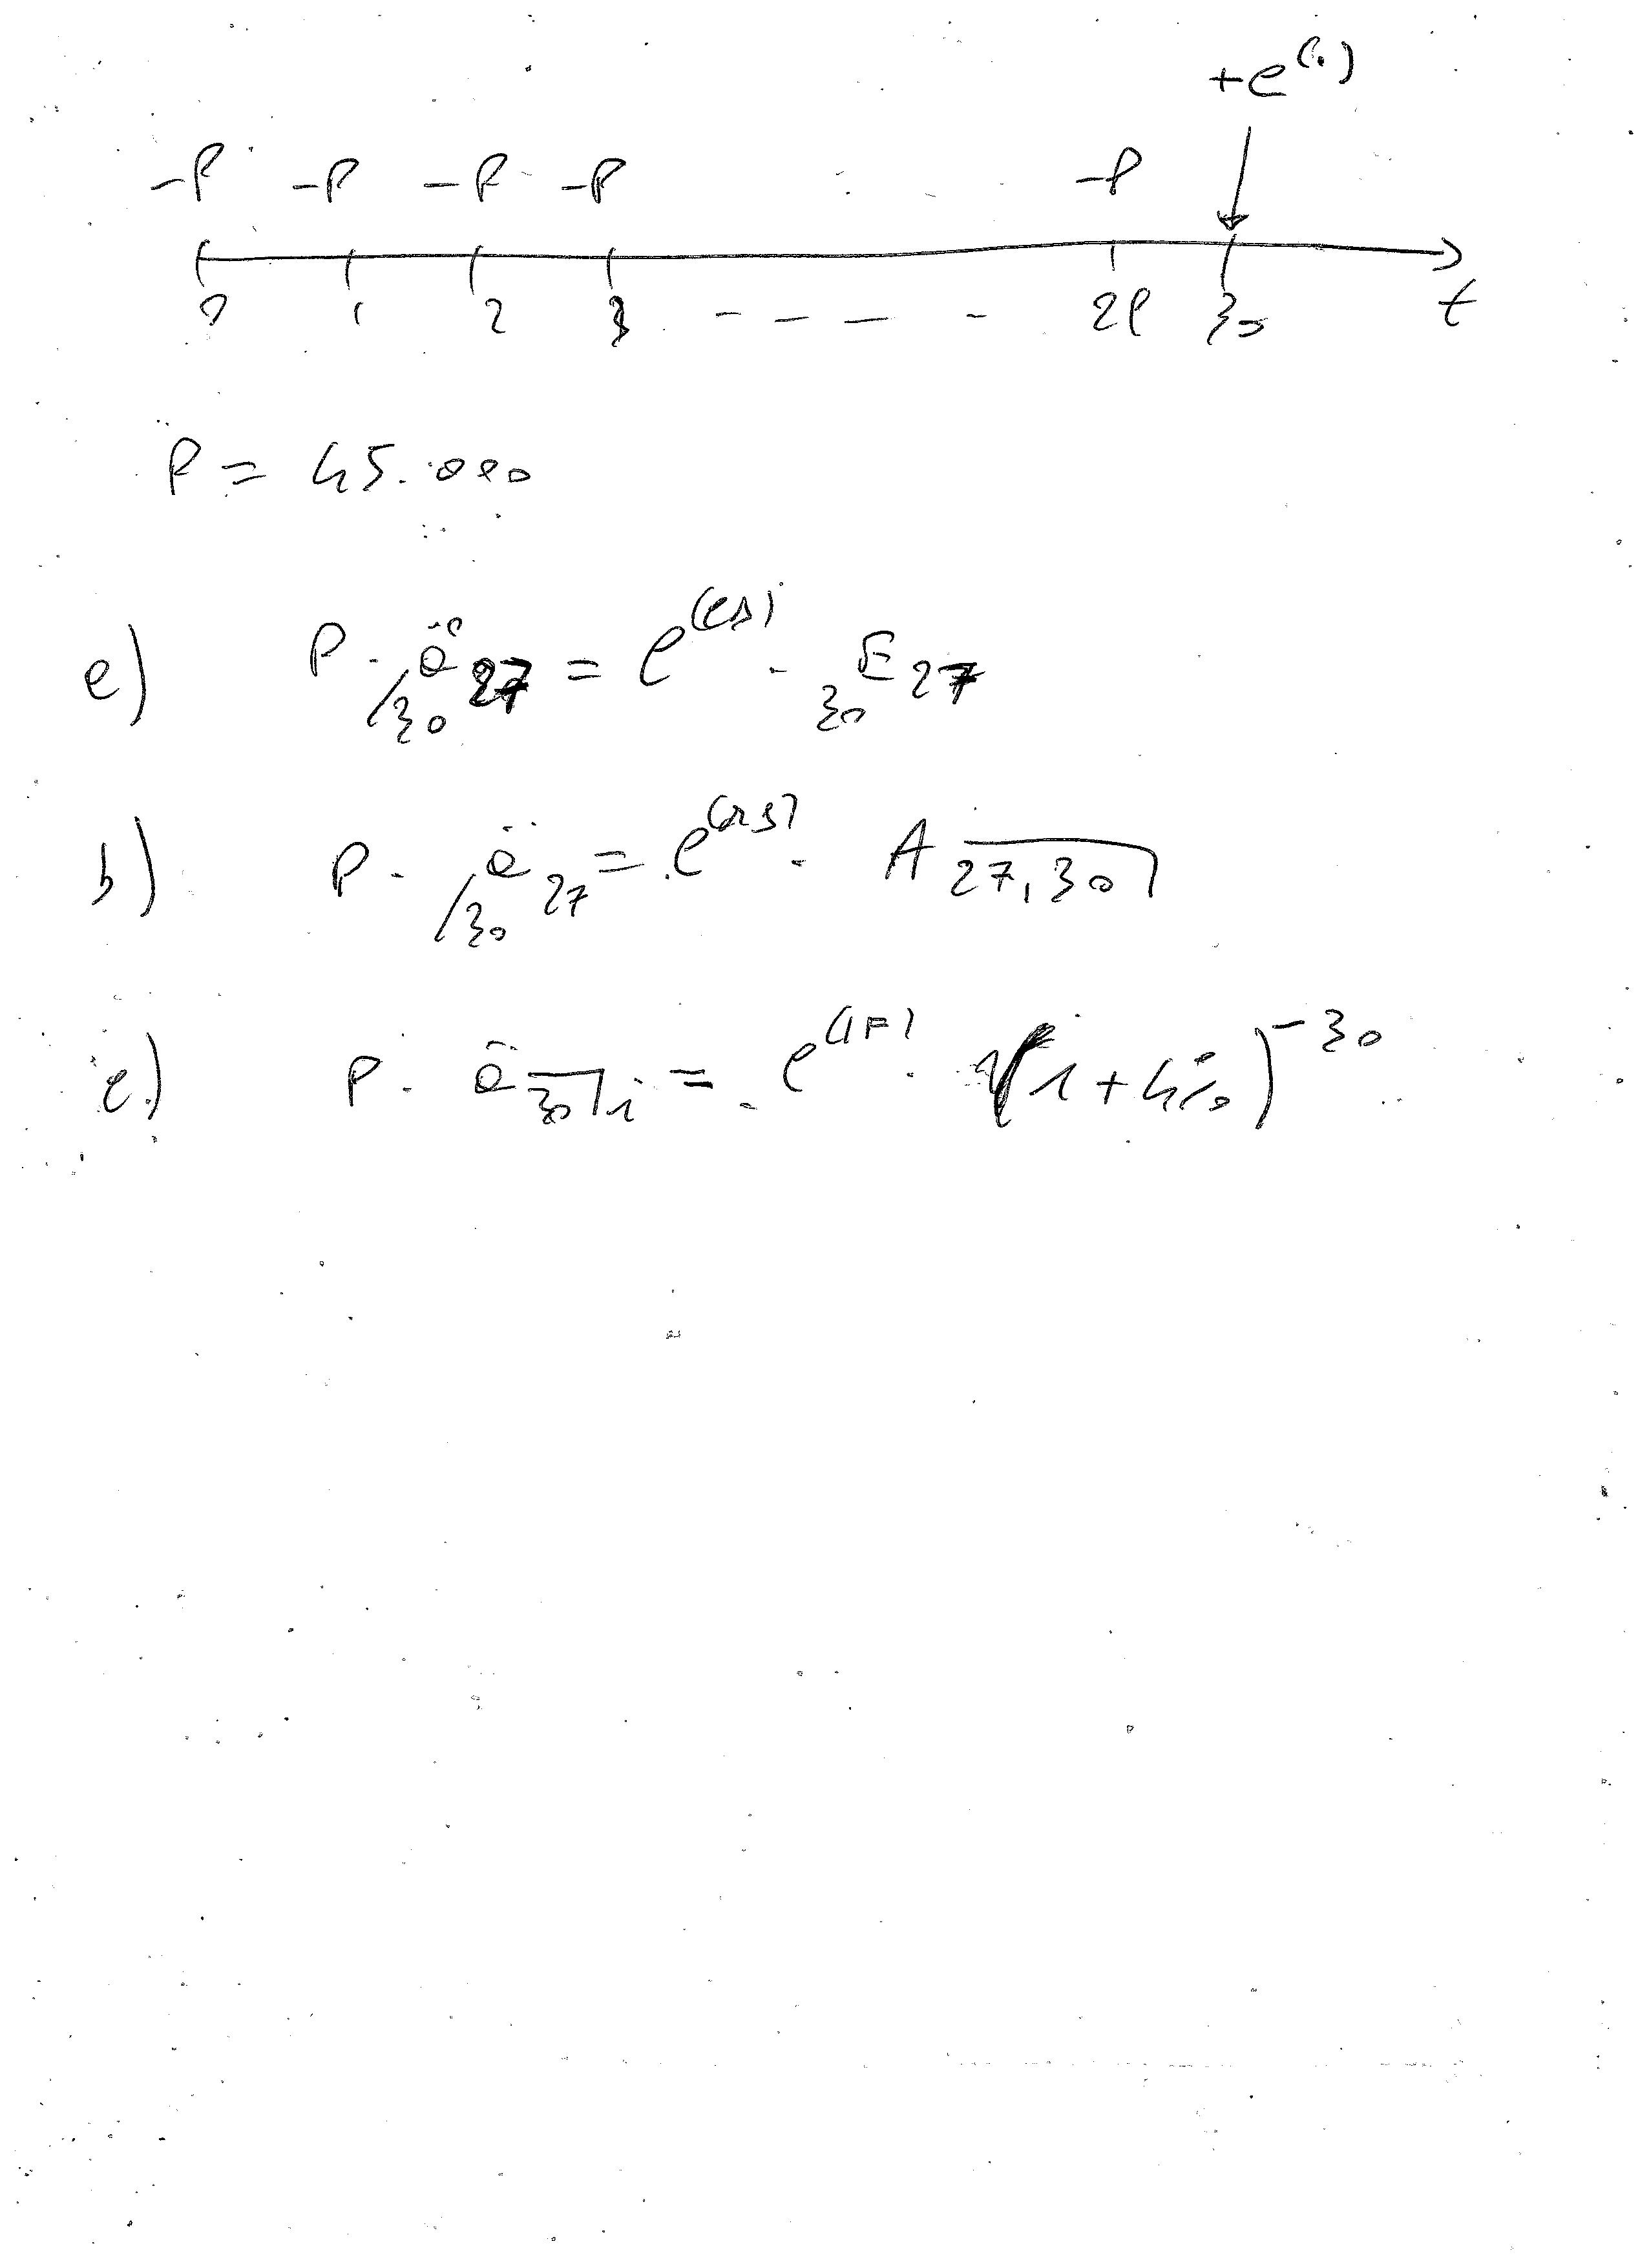 +e^(..)
-P -P -P -P -P
0 1 2 3 - - - - - 29 30 t
P = 45.000
a) P · /30 ä 27 = C^(CD) · 30 E 27
b) P · /30 ä 27 = C^(RS) · A 27,30⌉
c) P · ä 30⌉i = C^(LF) · (1 + 4%)^-30